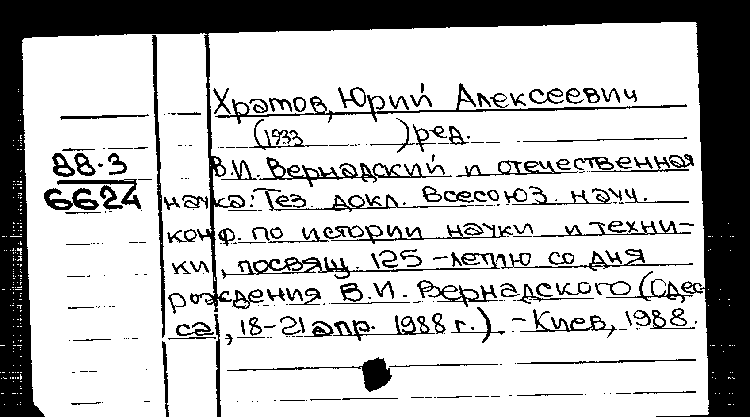 Храмов, Юрий Алексеевич
(1933 ) ред.
88.3
6624
В.И. Вернадский и отечественная
наука: Тез. докл. Всесоюз. науч.
конф. по истории науки и техни-
ки, посвящ. 125-летию со дня
рождения В.И. Вернадского (Одес-
са, 18-21 апр. 1988 г.). - Киев, 1988.